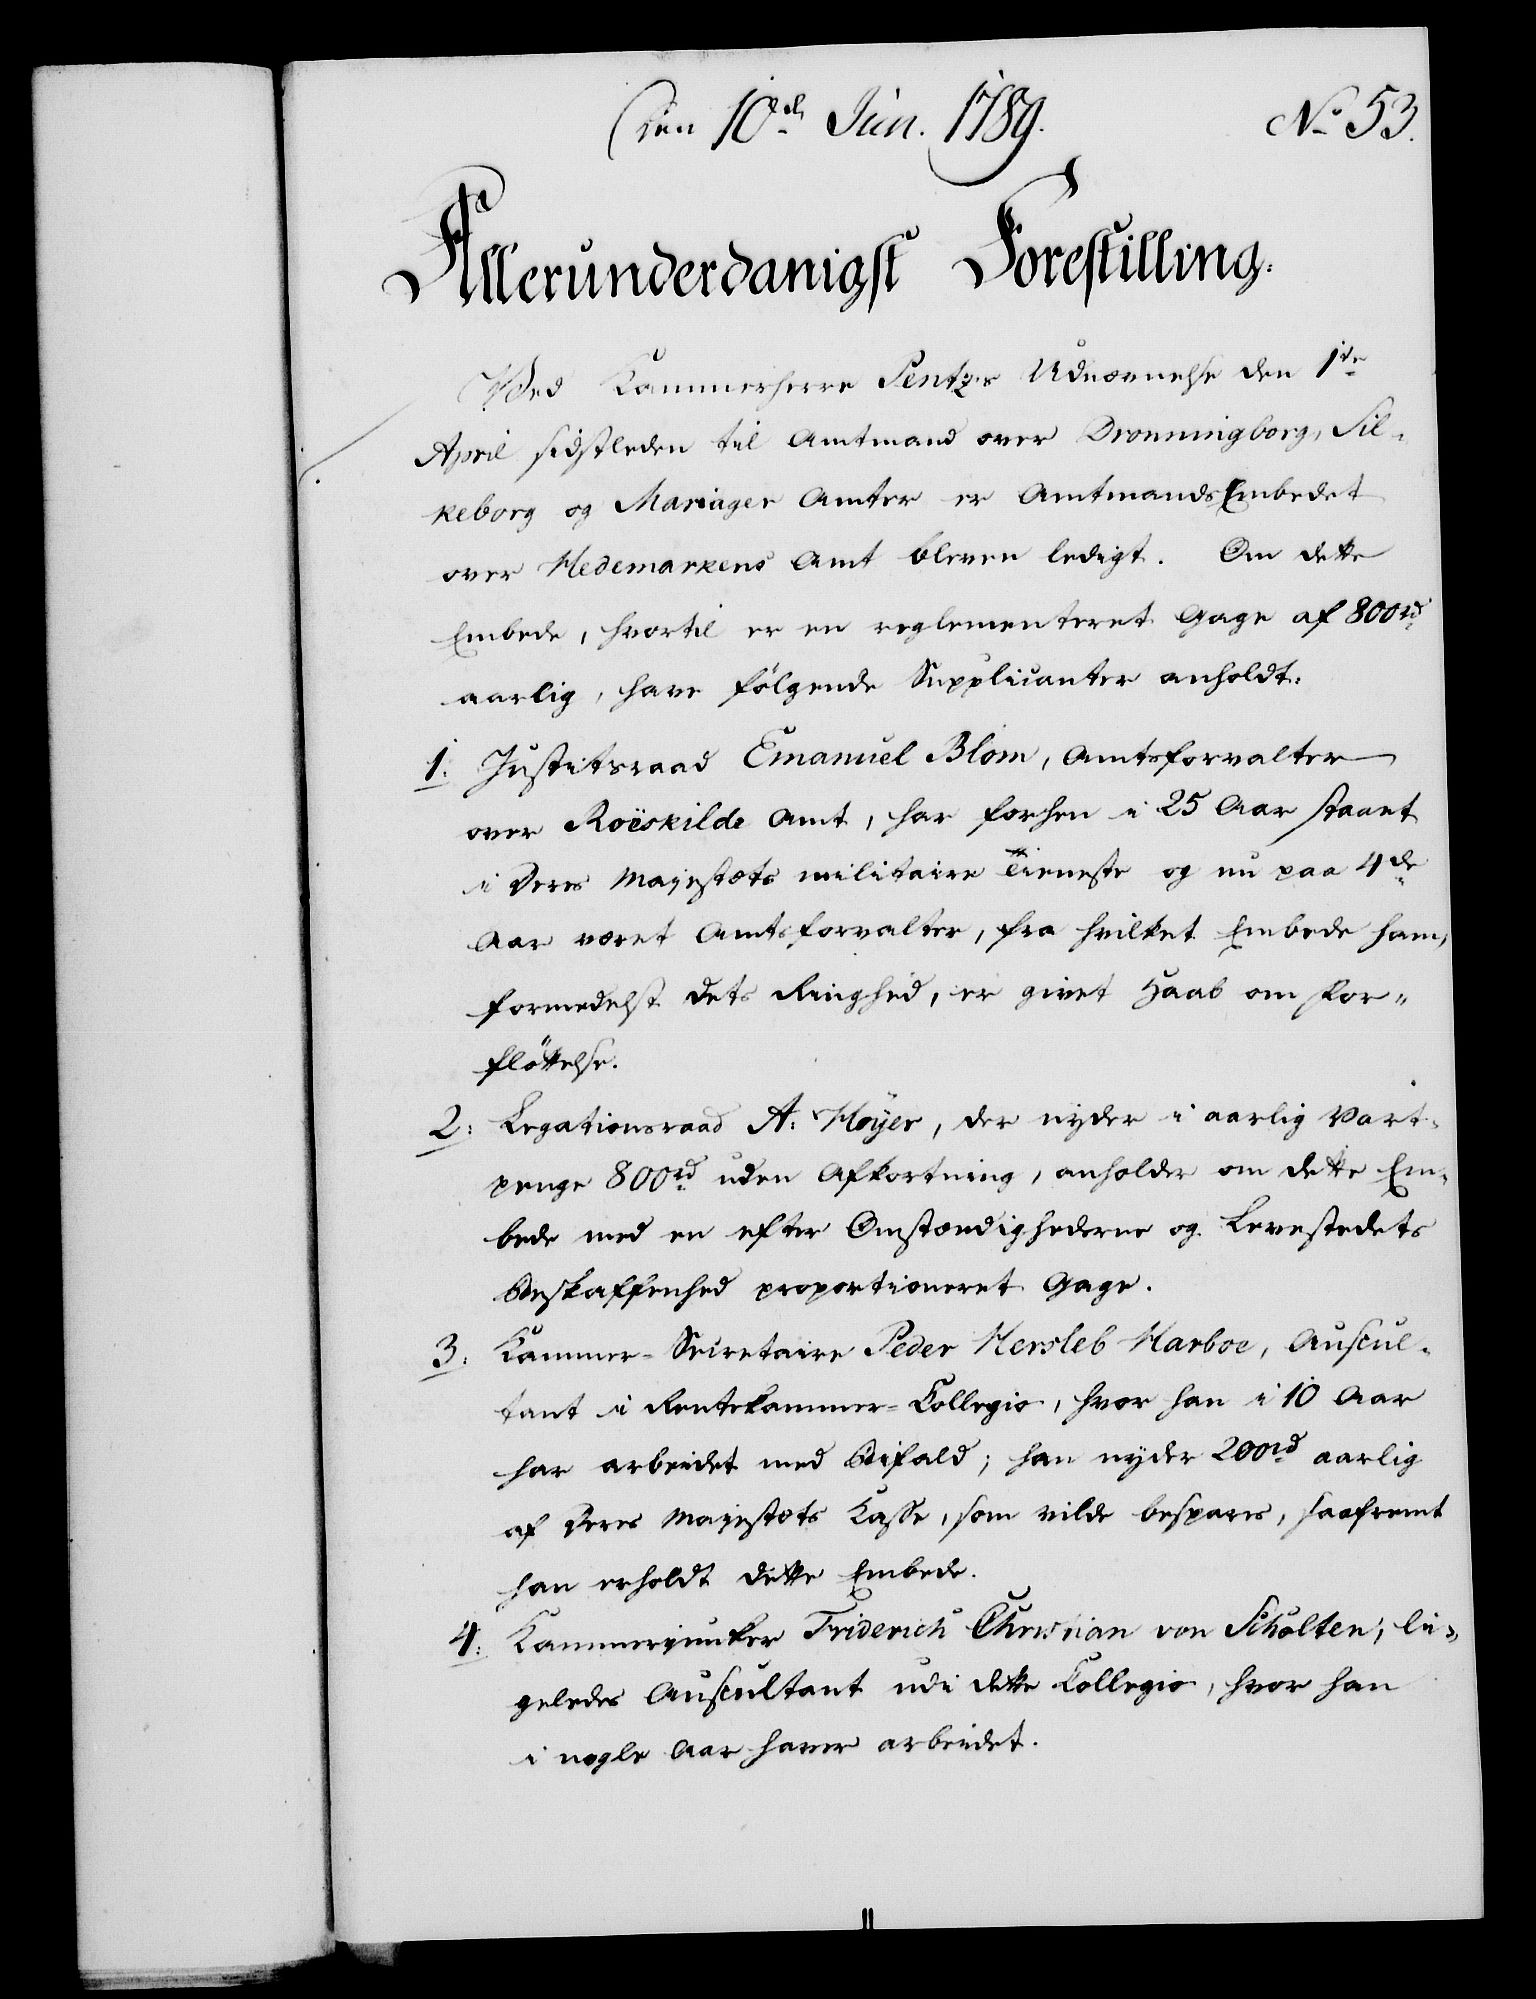 Den 10de Jun. 1789.
No 53.
Allerunderdanigst Forestilling.
Ved Kammerherre Pentzes Udnævnelse den 1te
April sidstleden til Amtmand over Dronningborg, Sil-
keborg og Mariager Amter er Amtmands Embedet
over Hedemarkens Amt bleven ledigt. Om dette
Embede, hvortil er en reglementeret Gage af 800rd
aarlig, have følgende Supplicanter anholdt:
1. Justitsraad Emanuel Blom, Amtsforvalter
over Roëskilde Amt, har forhen i 25 Aar staaet
i Deres Majestæts militaire Tieneste og nu paa 4de
Aar været Amtsforvalter, fra hvilket Embede ham,
formedelst dets Ringhed, er givet Haab om For-
fløttelse.
2. Legationsraad A. Høyer, der nyder i aarlig Vart-
penge 800rd uden Afkortning, anholder om dette Em-
bede med en efter Omstændighederne og Levestedets
Beskaffenhed proportioneret Gage.
3. Kammer-Secretaire Peder Hersleb Harboe, Auscul-
tant i Rentekammer-Collegio, hvor han i 10 Aar
har arbeidet med Bifald; han nyder 200rd aarlig
af Deres Majestæts Kasse, som vilde bespares, saafremt
han erholdt dette Embede.
4. Kammerjunker Friderich Christian von Scholten, li-
geledes Auscultant udi dette Collegio, hvor han
i nogle Aar haver arbeidet.